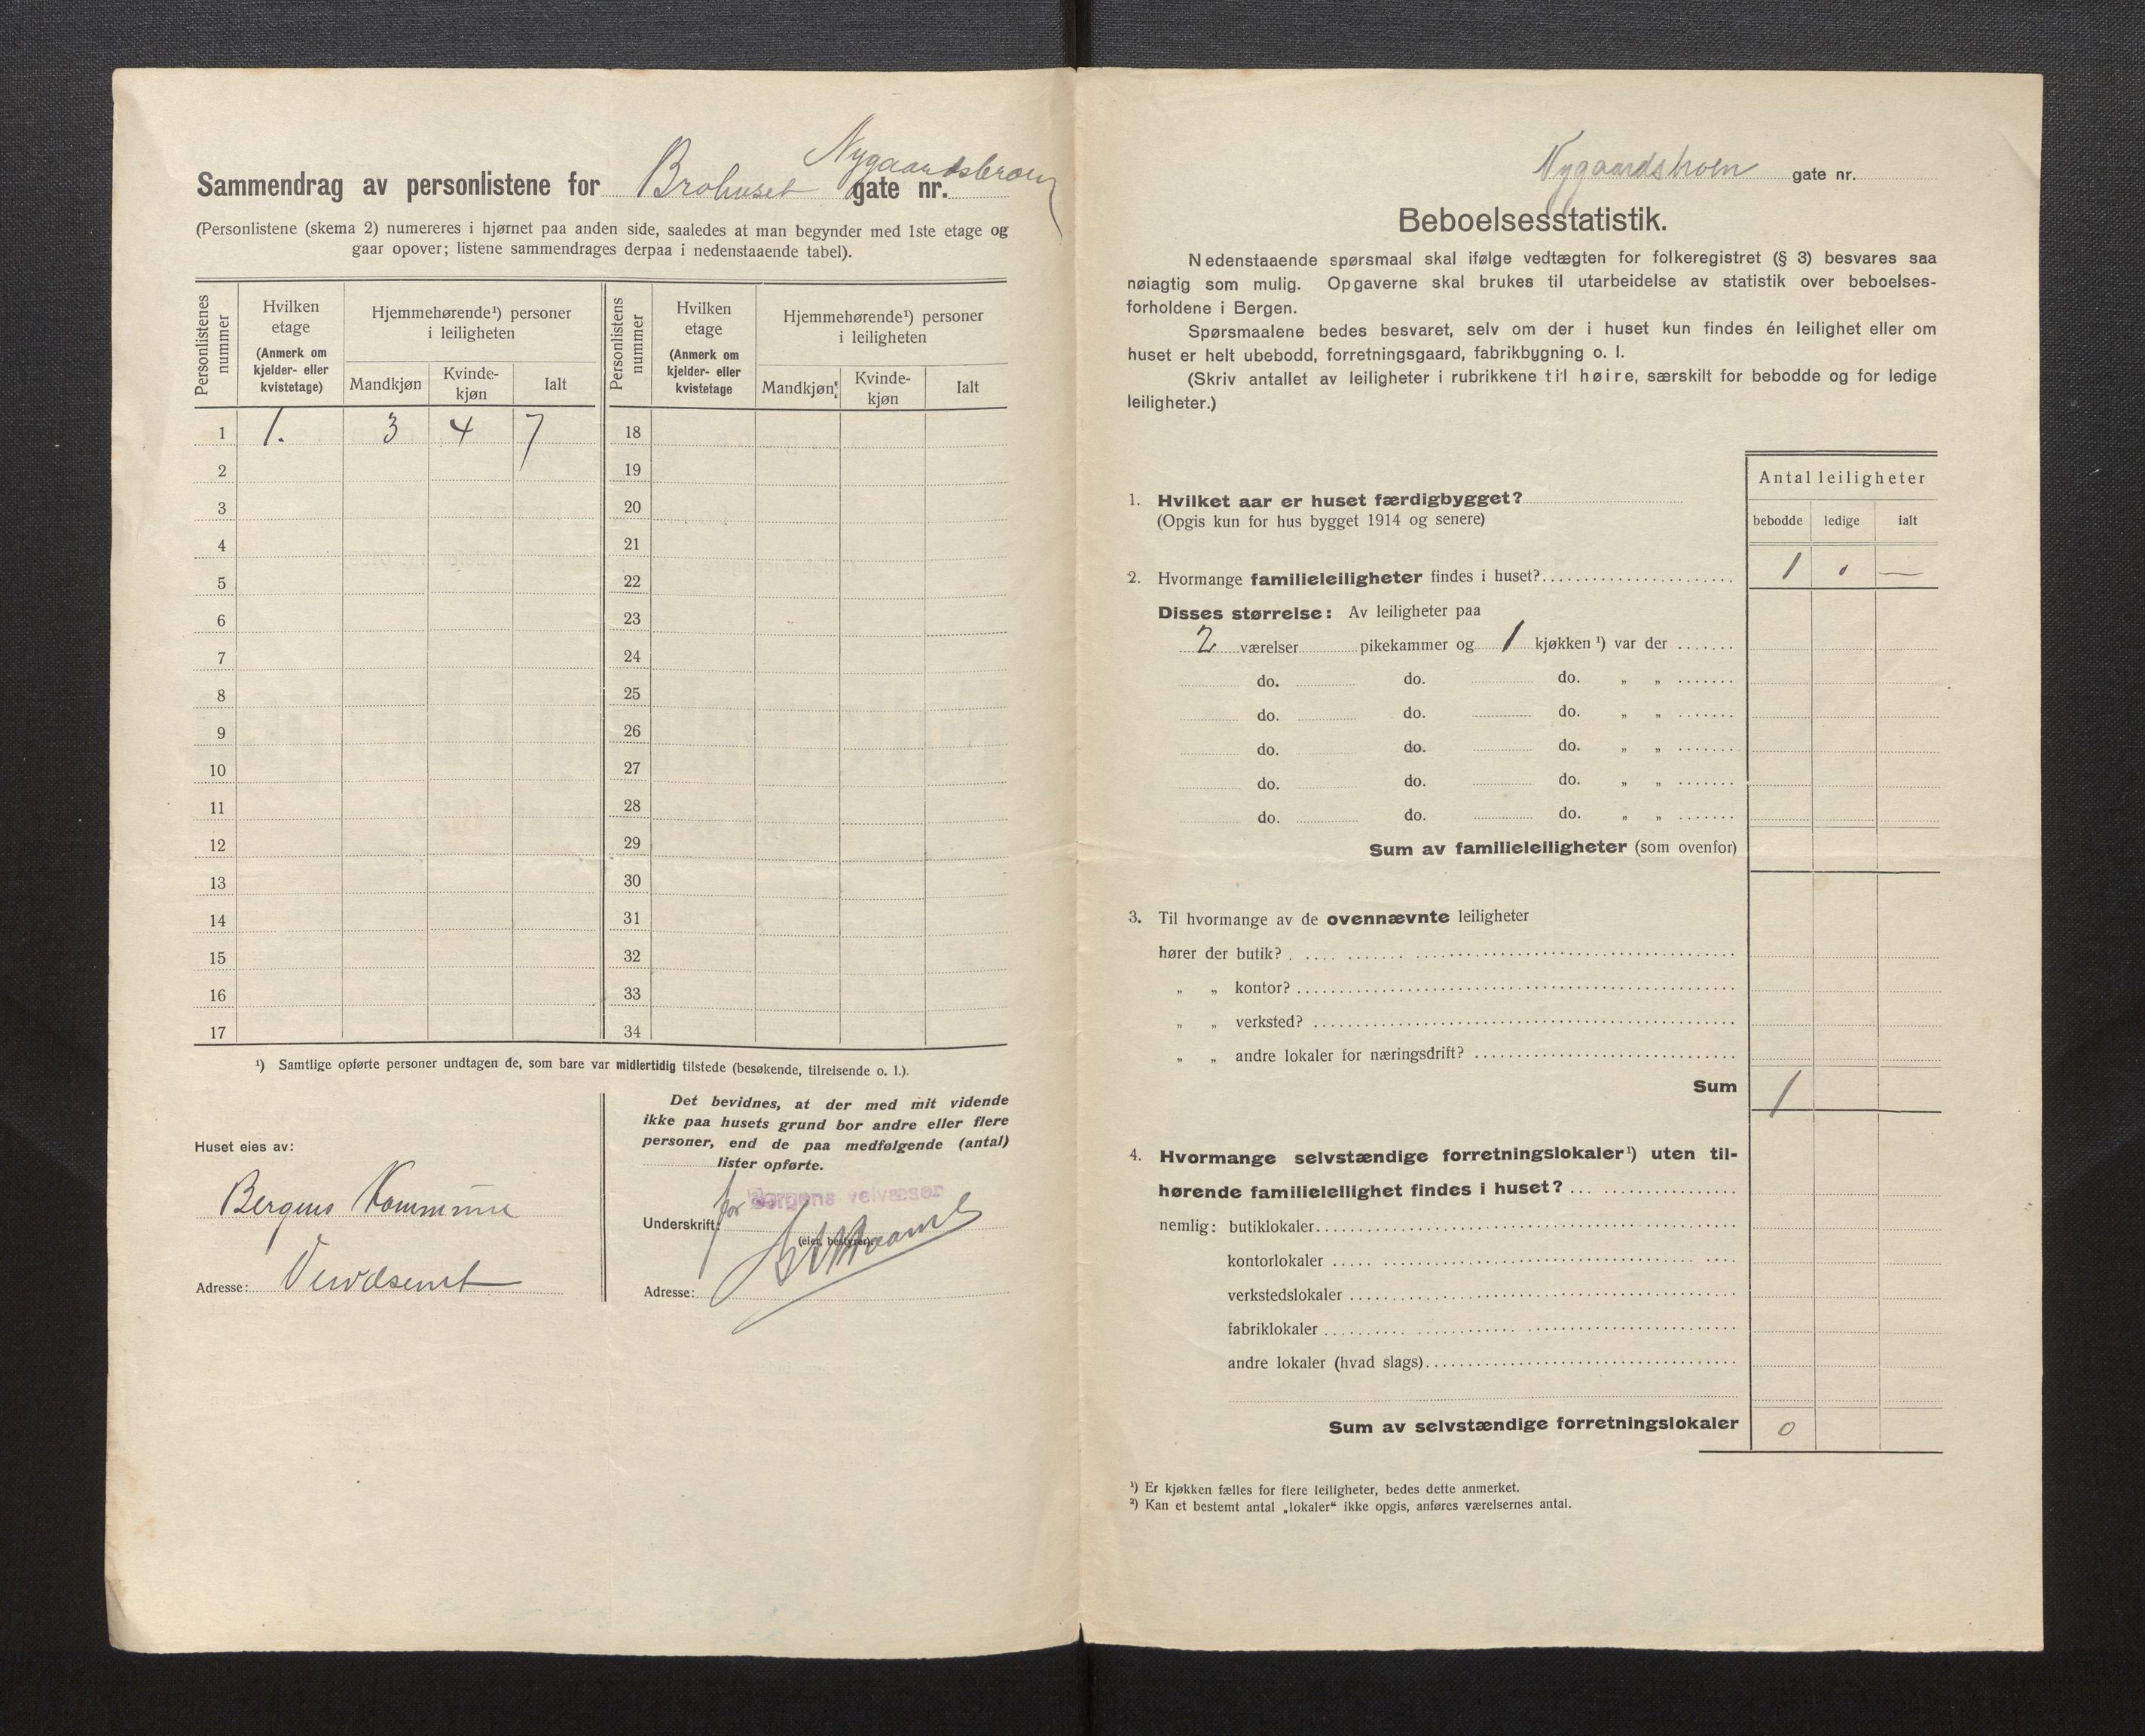 Nygaardsbroen
Sammendrag av personlistene for Brohuset gate nr.
(Personlistene (skema 2) numereres i hjørnet paa anden side, saaledes at man begynder med 1ste etage og
gaar opover; listene sammendrages derpaa i nedenstaaende tabel).
Personlistenes nummer
Hvilken etage (Anmerk om kjelder- eller kvistetage)
Hjemmehørende¹) personer i leiligheten
Mandkjøn Kvinde-kjøn Ialt
Personlistens nummer
Hvilken etage (Anmerk om kjelder- eller kvistetage
Hjemmehørende¹) personer i leiligheten
Mandkjøn Kvinde-kjøn Ialt
1 1. 3 4 7 18
2 19
3 20
4 21
5 22
6 23
7 24
8 25
9 26
10 27
11 28
12 29
13 30
14 31
15 32
16 33
17 34
¹) Samtlige opførte personer undtagen de, som bare var midlertidig tilstede (besøkende, tilreisende o. l.).
Huset eies av:
Bergens Kommune
Adresse:
Det bevidnes, at der med mit vidende
ikke paa husets grund bor andre eller flere
personer, end de paa medfølgende (antal)
lister opførte.
for Bergens veivæsen
Underskrift:
(eier, bestyrer)
Adresse:
Nygaardsbroen gate nr.
Beboelsesstatistik.
Nedenstaaende spørsmaal skal ifølge vedtægten for folkeregistret (§ 3) besvares saa
nøiagtig som mulig. Opgaverne skal brukes til utarbeidelse av statistik over beboelses-
forholdene i Bergen.
Spørsmaalene bedes besvaret, selv om der i huset kun findes én leilighet eller om
huset er helt ubebodd, forretningsgaard, fabrikbygning o. l.
(Skriv antallet av leiligheter i rubrikkene til høire, særskilt for bebodde og for ledige
leiligheter.)
Antal leiligheter
bebodde ledige ialt
1. Hvilket aar er huset færdigbygget?
(Opgis kun for hus bygget 1914 og senere)
2. Hvormange familieleiligheter findes i huset? 1 0 —
Disses størrelse: Av leiligheter paa
2 værelser pikekammer og 1 kjøkken ¹) var der
do. do. do. „ „
do. do. do. „ „
do. do. do. „ „
do. do. do. „ „
do. do. do. „ „
Sum av familieleiligheter (som ovenfor)
3. Til hvormange av de ovennævnte leiligheter
hører der butik?
„ „ kontor?
„ „ verksted?
„ „ andre lokaler for næringsdrift?
Sum 1
4. Hvormange selvstændige forretningslokaler¹) uten til-
hørende familieleilighet findes i huset?
nemlig: butiklokaler
kontorlokaler
verkstedslokaler
fabriklokaler
andre lokaler (hvad slags)
Sum av selvstændige forretningslokaler 0
¹) Er kjøkken fælles for flere leiligheter, bedes dette anmerket.
²) Kan et bestemt antal „lokaler“ ikke opgis, anføres værelsernes antal.